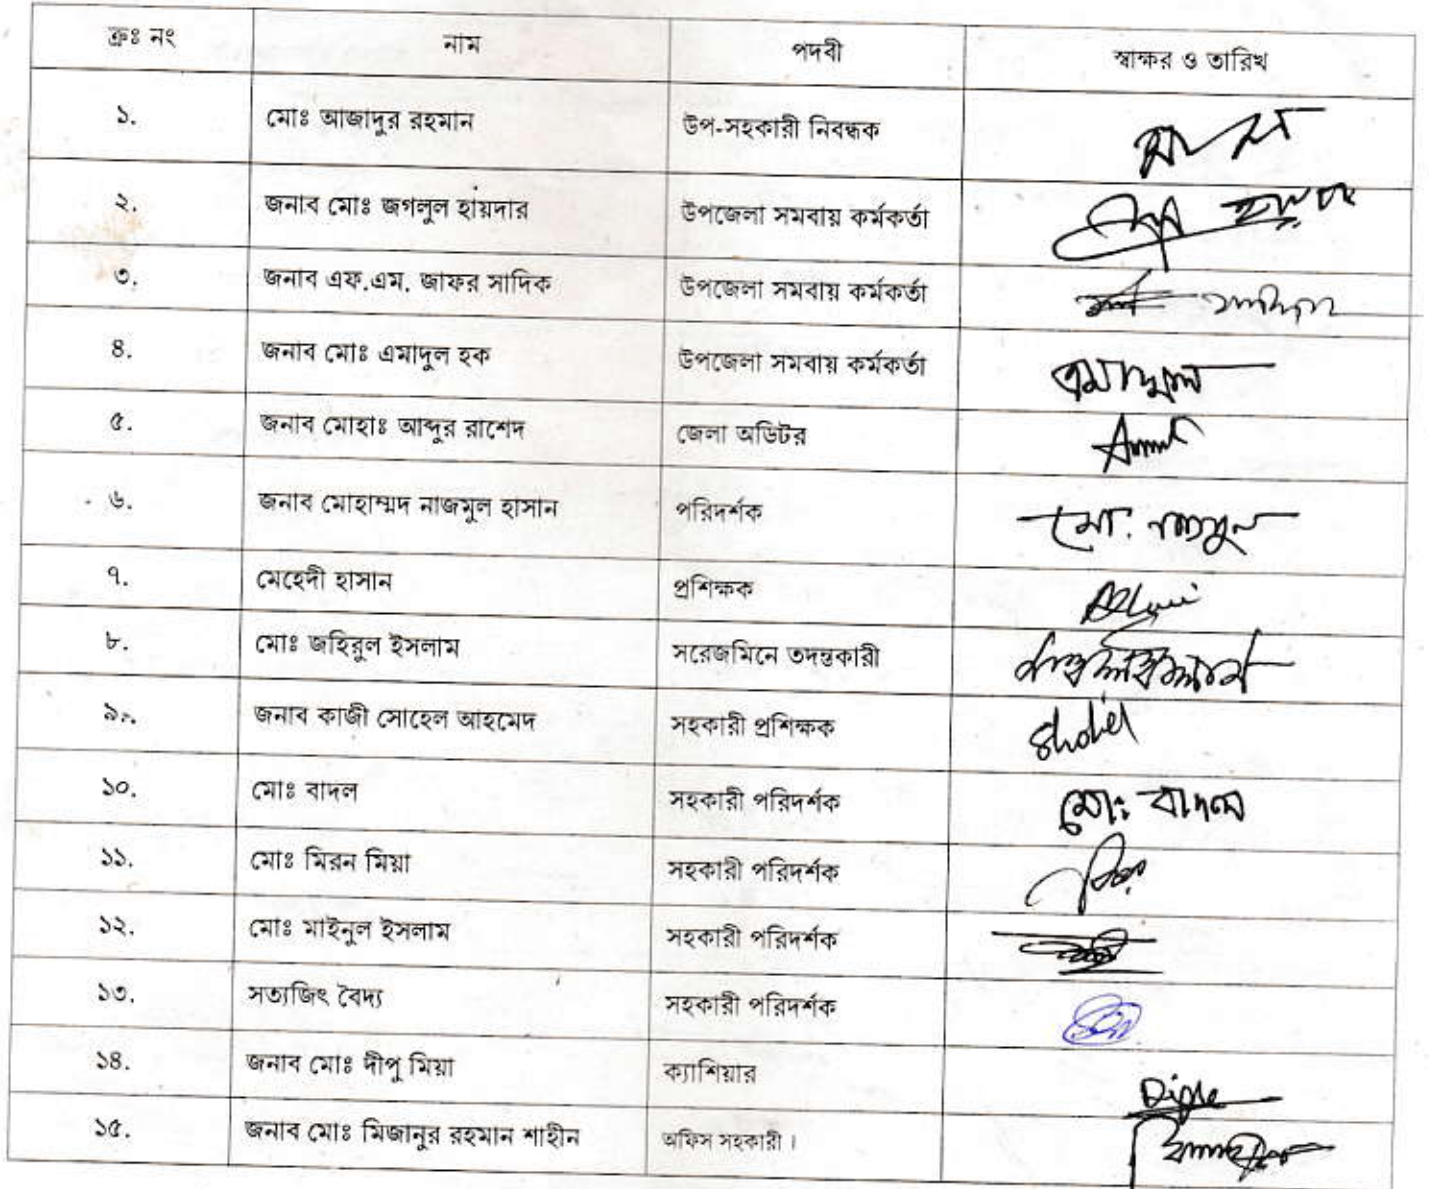 ক্রঃ নং নাম পদবী স্বাক্ষর ও তারিখ
১. মোঃ আজাদুর রহমান উপ-সহকারী নিবন্ধক
২. জনাব মোঃ জগলুল হায়দার উপজেলা সমবায় কর্মকর্তা
৩. জনাব এফ.এম. জাফর সাদিক উপজেলা সমবায় কর্মকর্তা
৪. জনাব মোঃ এমাদুল হক উপজেলা সমবায় কর্মকর্তা এমাদুল
৫. জনাব মোহাঃ আব্দুর রাশেদ জেলা অডিটর
৬. জনাব মোহাম্মদ নাজমুল হাসান পরিদর্শক মো. নাজমুল
৭. মেহেদী হাসান প্রশিক্ষক
৮. মোঃ জহিরুল ইসলাম সরেজমিনে তদন্তকারী
৯. জনাব কাজী সোহেল আহমেদ সহকারী প্রশিক্ষক
১০. মোঃ বাদল সহকারী পরিদর্শক মোঃ বাদল
১১. মোঃ মিরন মিয়া সহকারী পরিদর্শক
১২. মোঃ মাইনুল ইসলাম সহকারী পরিদর্শক
১৩. সত্যজিৎ বৈদ্য সহকারী পরিদর্শক
১৪. জনাব মোঃ দীপু মিয়া ক্যাশিয়ার
১৫. জনাব মোঃ মিজানুর রহমান শাহীন অফিস সহকারী।